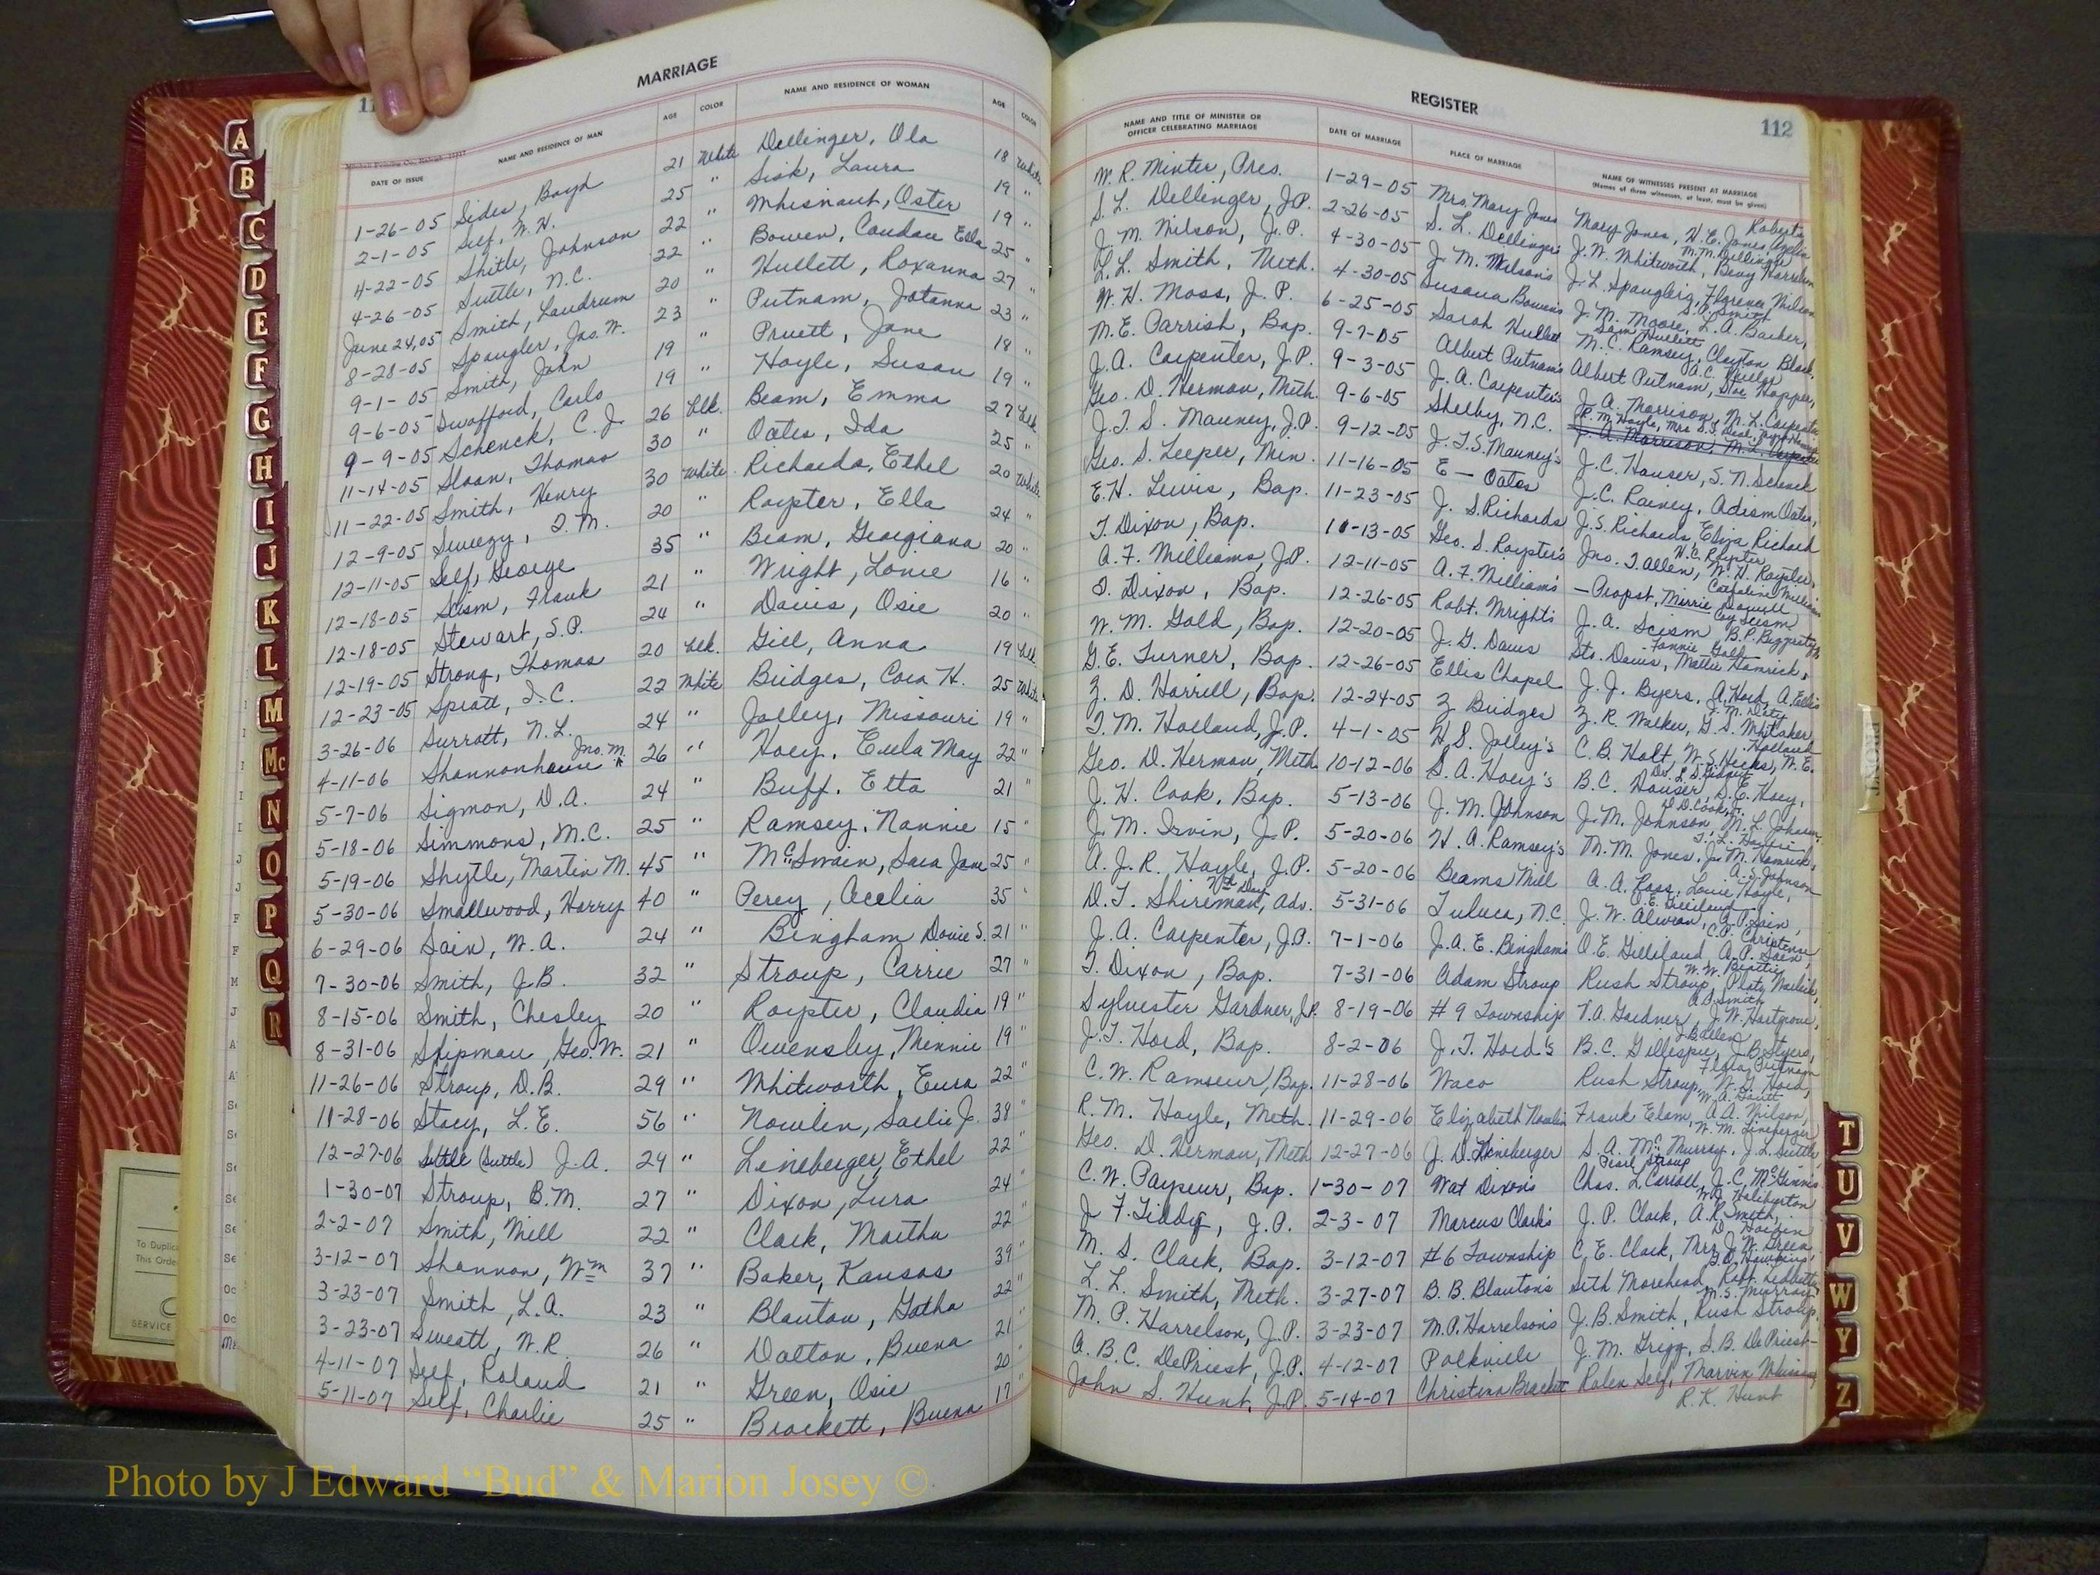 MARRIAGE
REGISTER
112
Mitchell Printing Co., Raleigh
DATE OF ISSUE
NAME AND RESIDENCE OF MAN
AGE
COLOR
NAME AND RESIDENCE OF WOMAN
AGE
COLOR
NAME AND TITLE OF MINISTER OR
OFFICER CELEBRATING MARRIAGE
DATE OF MARRIAGE
PLACE OF MARRIAGE
NAME OF WITNESSES PRESENT AT MARRIAGE
(Names of three witnesses, at least, must be given)
1-26-05 Sides, Boyd 21 White Dellinger, Ola 18 White
2-1-05 Self, W.H. 25 " Sisk, Laura 19 "
4-22-05 Shitle, Johnson 22 " Whisnaut, Oster 19 "
4-26-05 Suttle, N.C. 22 " Bowen, Candace Ella 25 "
June 24,05 Smith, Landrum 20 " Hullett, Roxanna 27 "
8-28-05 Spangler, Jno. W. 23 " Putnam, Jotanna 23 "
9-1-05 Smith, John 19 " Pruett, Jane 18 "
9-6-05 Swafford, Carlo 19 " Hoyle, Susan 19 "
9-9-05 Schenck, C.J. 26 blk. Beam, Emma 27 blk.
11-14-05 Sloan, Thomas 30 " Oates, Ida 25 "
11-22-05 Smith, Henry 30 White Richards, Ethel 20 White
12-9-05 Sweezy, D.M. 20 " Royster, Ella 24 "
12-11-05 Self, George 35 " Beam, Georgiana 20 "
12-18-05 Scism, Frank 21 " Wright, Lonie 16 "
12-18-05 Stewart, S.P. 24 " Davis, Osie 20 "
12-19-05 Strong, Thomas 20 blk. Gill, Anna 19 blk.
12-23-05 Spratt, I.C. 22 White Bridges, Cora H. 25 White
3-26-06 Surratt, N.L. 24 " Jolley, Missouri 19 "
4-11-06 Shannonhouse Jno. M. 26 " Hoey, Eula May 22 "
5-7-06 Sigmon, D.A. 24 " Buff, Etta 21 "
5-18-06 Simmons, M.C. 25 " Ramsey, Nannie 15 "
5-19-06 Shytle, Martin M. 45 " McSwain, Sara Jane 25 "
5-30-06 Smallwood, Harry 40 " Percy, Acelia 35 "
6-29-06 Sain, W.A. 24 " Bingham Dovie S. 21 "
7-30-06 Smith, J.B. 32 " Stroup, Carrie 27 "
8-15-06 Smith, Chesley 20 " Royster, Claudia 19 "
8-31-06 Shipman, Geo. W. 21 " Owensby, Minnie 19 "
11-26-06 Stroup, D.B. 29 " Whitworth, Eura 22 "
11-28-06 Stacy, L.E. 56 " Nowlin, Sallie J. 38 "
12-27-06 Settle (Suttle) J.A. 29 " Lineberger, Ethel 22 "
1-30-07 Stroup, B.M. 27 " Dixon, Lura 24 "
2-2-07 Smith, Will 22 " Clark, Martha 22 "
3-12-07 Shannon, Wm 37 " Baker, Kansas 39 "
3-23-07 Smith, L.A. 23 " Blanton, Gotha 22 "
3-23-07 Sweatt, W.R. 26 " Dalton, Buena 21 "
4-11-07 Self, Roland 21 " Green, Osie 20 "
5-11-07 Self, Charlie 25 " Brackett, Buena 17 "
W. R. Minter, Pres. 1-29-05 Mrs. Mary Jones Mary Jones, H.E. Jones,
S. L. Dellinger, J.P. 2-26-05 S. L. Dellinger's J. W. Whitworth,
J. M. Wilson, J.P. 4-30-05 J. M. Wilson's J. L. Spangler, Florence Wilson
L.L. Smith, Meth. 4-30-05 Susana Bowens J. M. Moore, L. A. Barber,
W. H. Moss, J.P. 6-25-05 Sarah Hullett M. C. Ramsey, Clayton Black,
M. E. Parrish, Bap. 9-7-05 Albert Putnam's Albert Putnam, Doc Hopper,
J. A. Carpenter, J.P. 9-3-05 J. A. Carpenter's J. A. Morrison, M. L. Carpenter
Geo. D. Herman, Meth. 9-6-05 Shelby, N.C.
J. T. S. Mauney, J.P. 9-12-05 J. T. S. Mauney's J. C. Hauser, S. N. Schenck
Geo. S. Leeper, Min. 11-16-05 E — Oates J. C. Rainey, Adism Oates,
E. H. Lewis, Bap. 11-23-05 J. S. Richards J. S. Richards, Eliza Richard
T. Dixon, Bap. 11-13-05 Geo. S. Royster's Jno. T. Allen, W. H. Royster,
A. F. Williams, J.P. 12-11-05 A. F. William's — Propst,
T. Dixon, Bap. 12-26-05 Robt. Wright's J. A. Scism,
W. M. Gold, Bap. 12-20-05 J. G. Davis Sto. Davis, Mollie Hamrick,
G. E. Turner, Bap. 12-26-05 Ellis Chapel J. J. Byers, A. Hord,
Z. D. Harrill, Bap. 12-24-05 Z Bridges Z. R. Walker, G. S. Whitaker,
T. M. Holland, J.P. 4-1-05 H S. Jolley's C. B. Holt, W. S. Hicks, W. E. Holland
Geo. D. Herman, Meth. 10-12-06 S. A. Hoey's B. C. Houser, S. E. Hoey,
J. H. Cook, Bap. 5-13-06 J. M. Johnson J. M. Johnson, M. L. Johnson,
J. M. Irvin, J.P. 5-20-06 H. A. Ramsey's M. M. Jones, J. M. Hamrick,
A. J. R. Hoyle, J.P. 5-20-06 Beams Mill A. A. Ross, Louie Hoyle,
D. T. Shireman, 7th Day Adv. 5-31-06 Toluca, N.C. J. W. Alwran, A. P. Sain,
J. A. Carpenter, J.P. 7-1-06 J. A. E. Binghams O. E. Gilliland, A. P. Sain,
T. Dixon, Bap. 7-31-06 Adam Stroup Rush Stroup,
Sylvester Gardner, J.P. 8-19-06 #9 Township V. A. Gardner, J. W. Hartgrove,
J. T. Hord, Bap. 8-2-06 J. T. Hord's B. C. Gillespie, J. B. Styers,
C. W. Ramseur, Bap. 11-28-06 Waco Rush Stroup, W. D. Hord,
R. M. Hoyle, Meth. 11-29-06 Elizabeth Nowlin Frank Elam, A. A. Wilson,
Geo. D. Herman, Meth 12-27-06 J. D. Lineberger S. A. McMurray, J. L. Suttle,
C. W. Payseur, Bap. 1-30-07 Wat Dixon's Chas. L. Carroll, J. C. McGinnis
J F. Tiddy, J.P. 2-3-07 Marcus Clark's J. P. Clark, A. R. Smith,
M. S. Clark, Bap. 3-12-07 #6 Township C. E. Clark, Mrs J. W. Green,
L. L. Smith, Meth. 3-27-07 B. B. Blanton's Seth Morehead, Robt. Ledbetter
M. P. Harrelson, J.P. 3-23-07 M.P. Harrelson's J. B. Smith, Rush Stroup
A. B. C. DePriest, J.P. 4-12-07 Polkville J. M. Grigg, S. B. DePriest
John S. Hunt, J.P. 5-14-07 Christina Brackett Rolen Self, Marvin
R. K. Hunt
A
B
C
D
E
F
G
H
I
J
K
L
M
Mc
N
O
P
Q
R
T
U
V
W
Y
Z
To Duplic
This Orde
SERVICE
Photo by J Edward “Bud” & Marion Josey ©